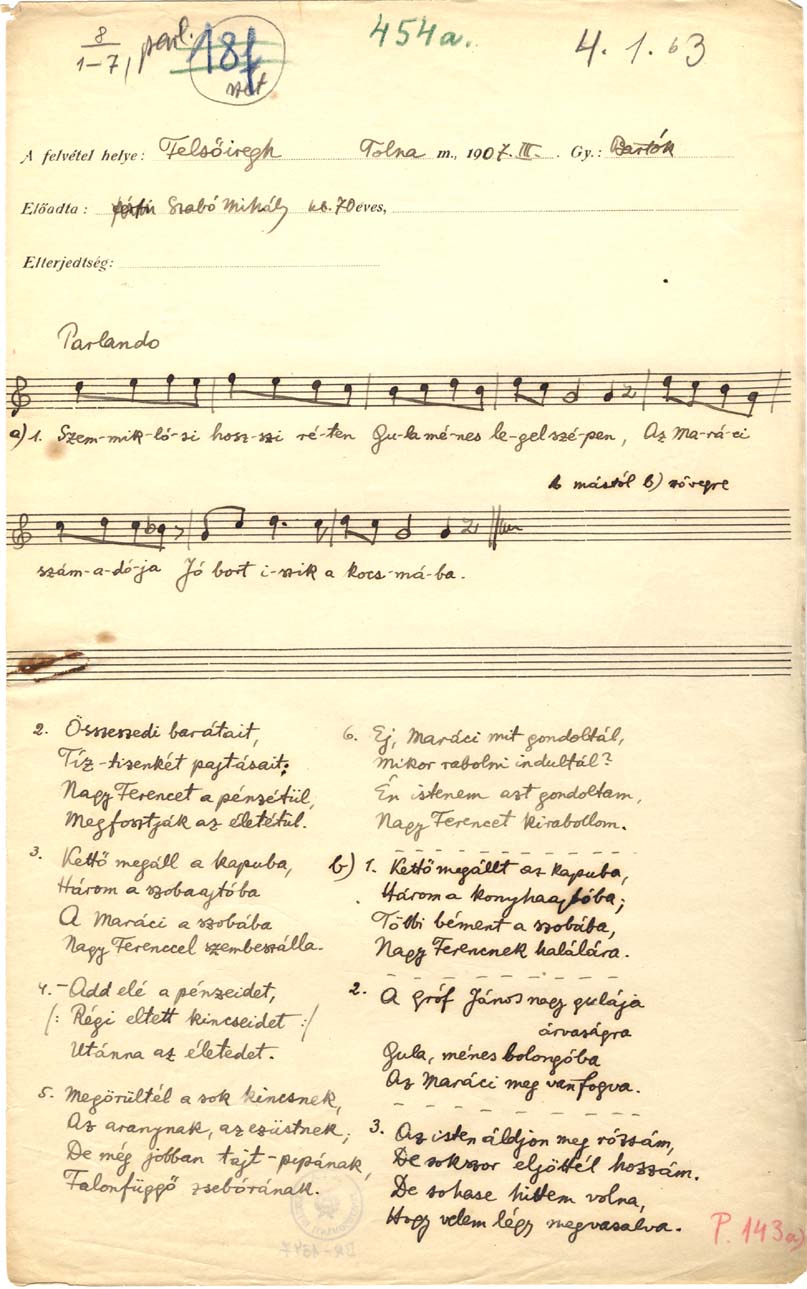 8
1–7, parl. 18f 454a. 4.1.63
szót
A felvétel helye: Felsőiregh Tolna m., 1907.III. Gy.: Bartók
Előadta: Szabó Mihály kb. 70 éves,
Elterjedtség:
Parlando
a) 1. Szem-mik-ló-si hosz-szi ré-ten Gu-la mé-nes le-gel szé-pen, Az Ma-rá-ci
mástól b) szövegre
szám-a-dó-ja Jó bort i-szik a kocs-má-ba.
2. Összeszedi barátait,
Tíz-tizenkét pajtásait;
Nagy Ferencet a pénzétül,
Megfosztják az életétül.
3. Kettő megáll a kapuba,
Három a szobaajtóba
A Maráci a szobába
Nagy Ferenccel szembeszálla.
4. – Add elé a pénzeidet,
/: Régi eltett kincseidet :/
Utánna az életedet.
5. Megörültél a sok kincsnek,
Az aranynak, az ezüstnek;
De még jobban tajt-pipának,
Falonfüggő zsebórának.
6. Ej, Maráci mit gondoltál,
Mikor rabolni indultál?
Én istenem azt gondoltam,
Nagy Ferencet kirabollom.
b) 1. Kettő megállt az kapuba,
Három a konyhaajtóba;
Többi bément a szobába,
Nagy Ferencnek halálára.
2. A gróf János nagy gulája
árvaságra
Gula, ménes bolongóba
Az Maráci meg van fogva.
3. Az isten áldjon meg rózsám,
De sokszor eljöttél hozzám.
De sohase hittem volna,
Hogy velem légy megvasalva.
P. 143a)